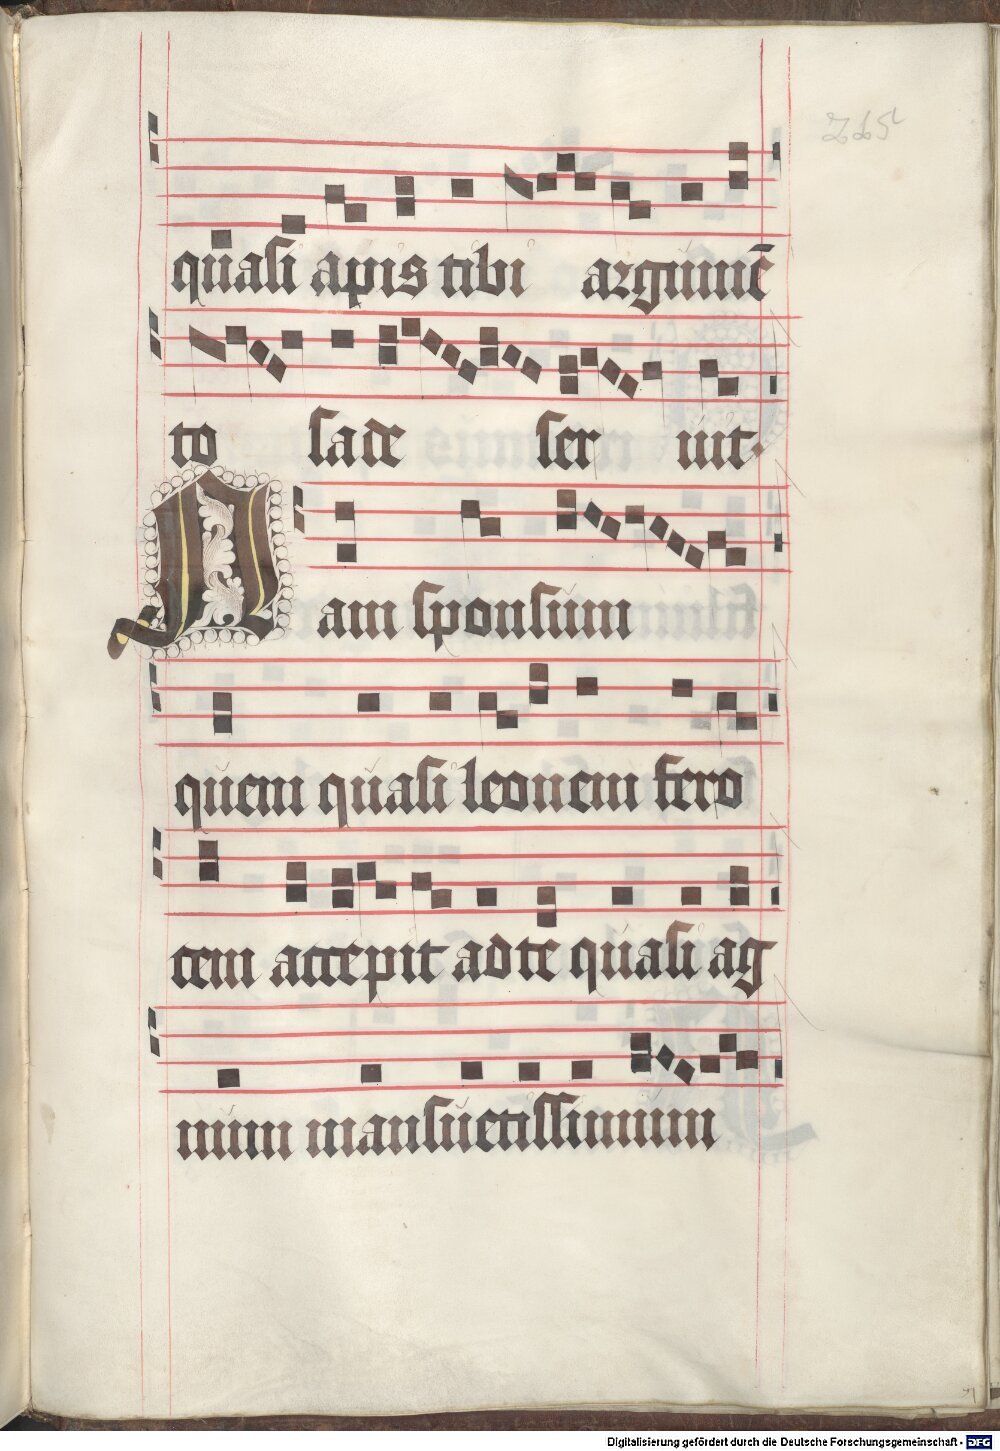 265
quasi apis tibi argumē
to sa de ser uit.
Nam sponsum
quem quasi leonem fero
cem accepit ad te quasi ag
num mansuetissimum
Digitalisierung gefördert durch die Deutsche Forschungsgemeinschaft - DFG